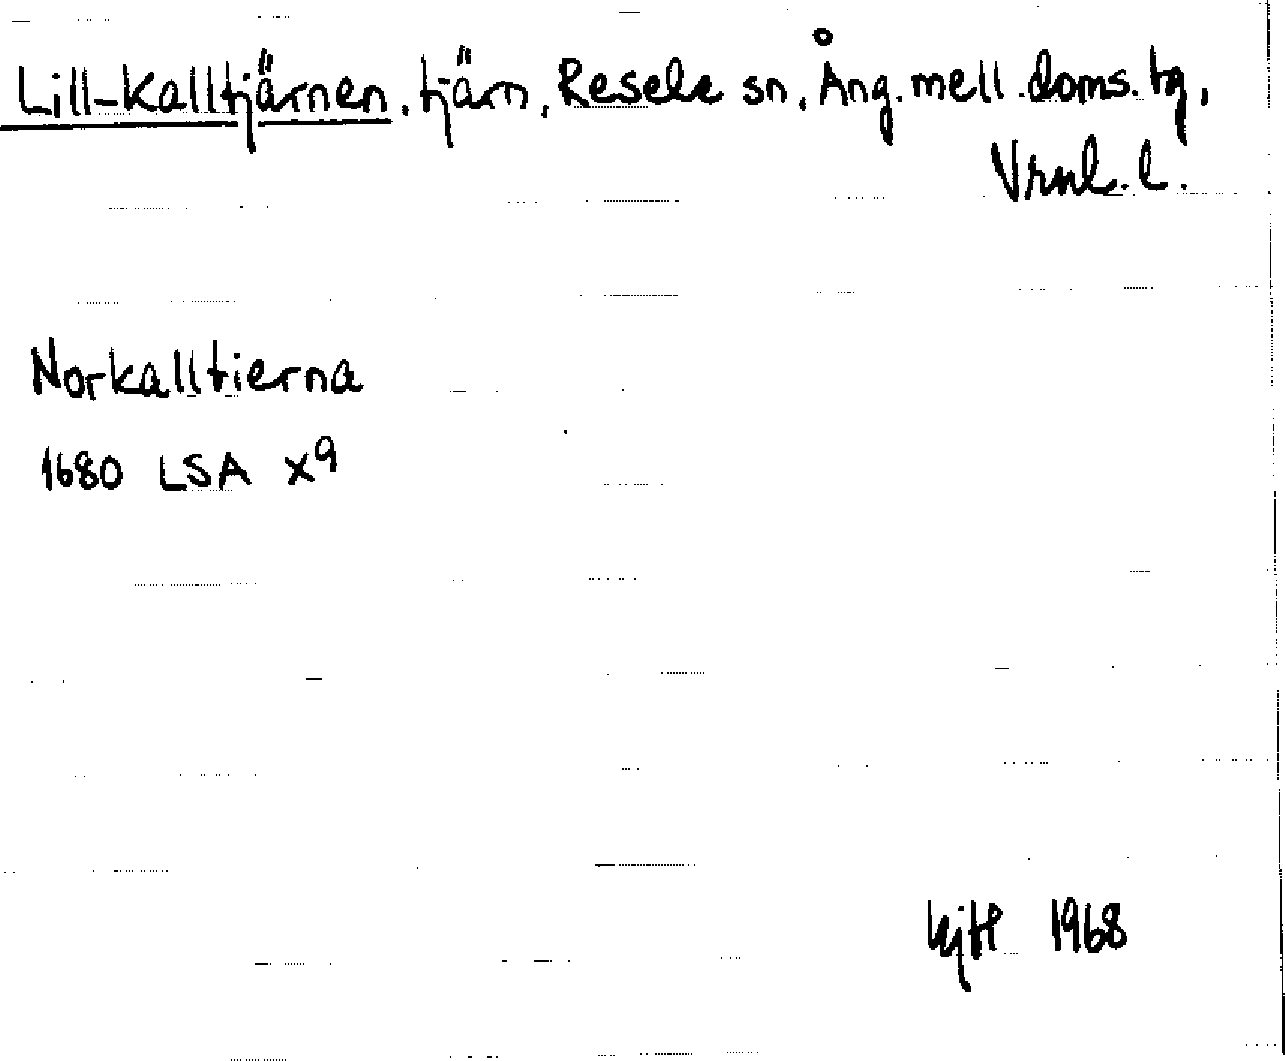 Lill-Kalltjärnen, tjärn, Resele sn, Ång. mell. doms. tg,
Vrnl. l.
Norkalltierna
1680 LSA X9
1968